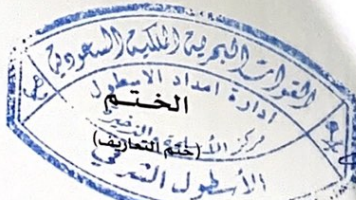 القوات البحرية الملكية السعودية
إدارة إمداد الاسطول
الختم
مركز
(ختم التعاريف)
الأسطول الشرقي